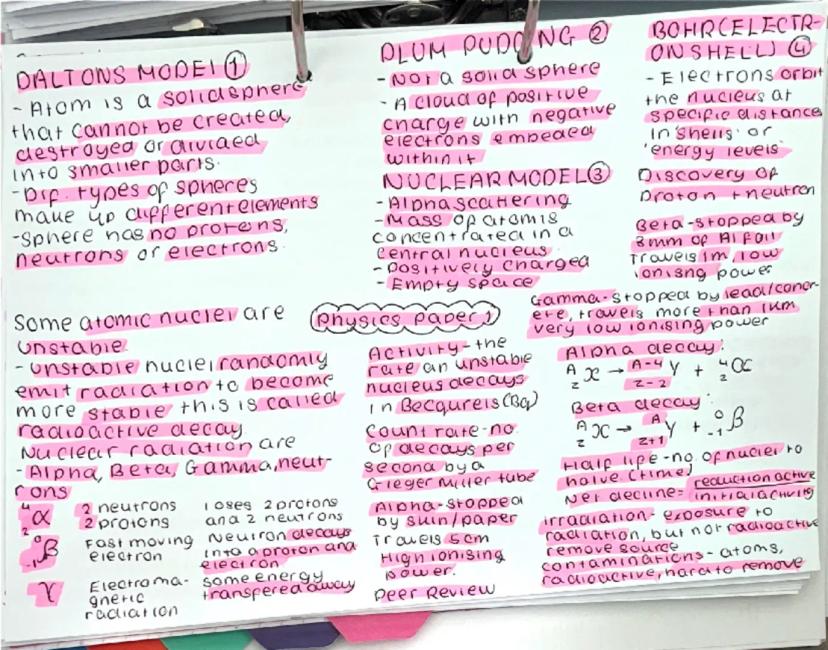 DALTONS MODEL ①
- Atom is a solid sphere
that cannot be created,
destroyed or divided
into smaller parts.
- Dif. types of spheres
make up different elements
- Sphere has no protons,
neutrons or electrons.
PLUM PUDDING ②
- Not a solid sphere
- A cloud of positive
charge with negative
electrons embeded
within it
NUCLEAR MODEL ③
- Alpha scattering
- Mass of atom is
concentrated in a
central nucleus
- Positively charged
- Empty space
BOHR (ELECTR-
ON SHELL) ④
- Electrons orbit
the nucleus at
specific distance
in 'shells' or
'energy levels'
Discovery of
proton + neutron
Beta - stopped by
3mm of Al foil
Travels 1m, low
ionising power
Gamma - stopped by lead/concr-
ete, travels more than 1km
very low ionising power
Physics Paper 1
Some atomic nuclei are
unstable.
- Unstable nuclei randomly
emit radiation to become
more stable this is called
radioactive decay
Nuclear radiation are
- Alpha, Beta, Gamma, neut-
rons
4 2 α 2 neutrons 2 protons loses 2 protons and 2 neutrons
0 -1 β Fast moving electron Neutron decays into a proton and electron
γ Electroma-gnetic radiation some energy transfered away
Activity - the
rate an unstable
nucleus decays
in Becqurels (Bq)
Count rate - no
of decays per
second by a
Gieger Muller tube
Alpha - stopped
by skin/paper
Travels 5cm
High ionising
power.
Peer Review
Alpha decay:
A Z X → A-4 Z-2 Y + 4 2 α
Beta decay:
A Z X → A Z+1 Y + 0 -1 β
Half life - no. of nuclei to
halve (time)
Net decline = reduction active / initial activity
irradiation - exposure to
radiation, but not radioactive
remove source
contaminations - atoms,
radioactive, hard to remove